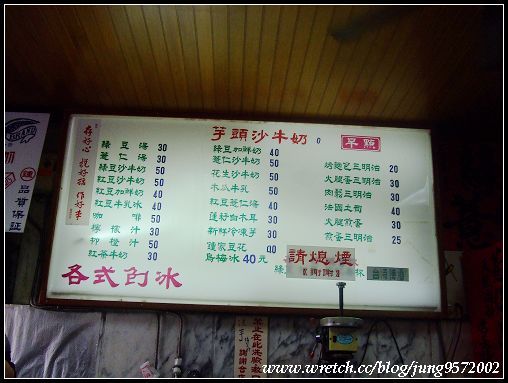 存好心 說好話 作好事
芋頭沙牛奶 0
早點
綠豆湯 30
薏仁湯 30
紅豆沙牛奶 50
紅豆加鮮奶 40
紅豆牛乳冰 40
咖啡 50
檸檬汁 30
柳橙汁 50
紅茶牛奶 30
各式刨冰
綠豆加鮮奶 40
薏仁沙牛奶 50
花生沙牛奶 50
木瓜牛乳 50
紅豆薏仁湯 40
蓮籽白木耳 30
新鮮冷凍芋 30
蓮家豆花 40
烏梅冰 40元
烤麵包三明治 20
火腿蛋三明治 30
肉鬆三明治 30
法國土司 40
火腿煎蛋 40
煎蛋三明治 25
請熄煙
《謝謝》
品質保証
www.wretch.cc/blog/jung9572002